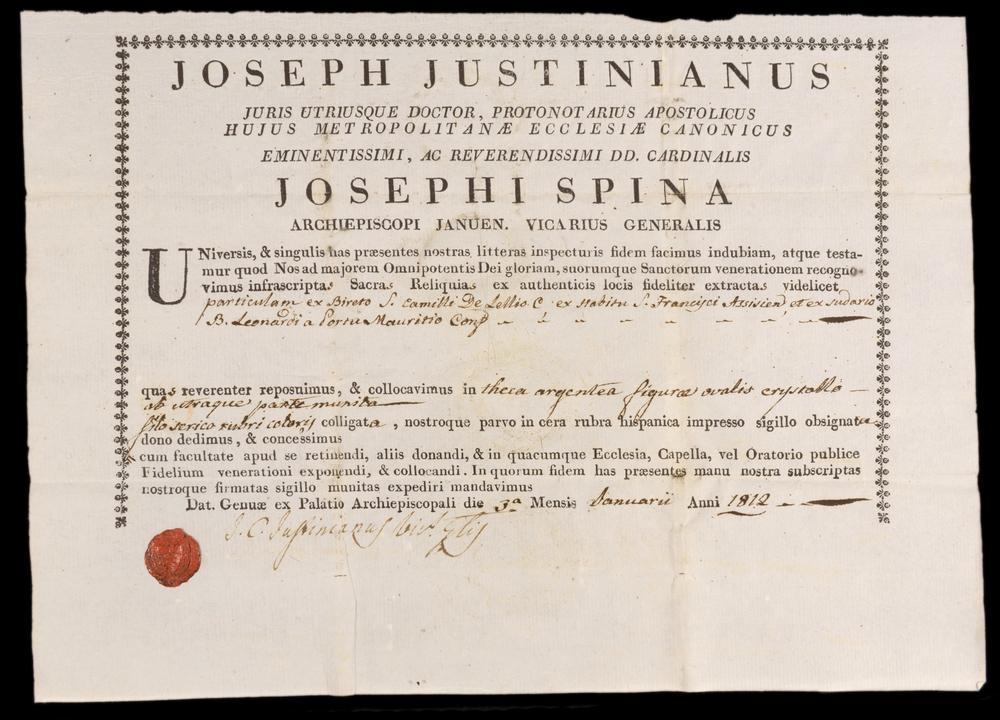 JOSEPH JUSTINIANUS
JURIS UTRIUSQUE DOCTOR, PROTONOTARIUS APOSTOLICUS
HUJUS METROPOLITANÆ ECCLESIÆ CANONICUS
EMINENTISSIMI, AC REVERENDISSIMI DD. CARDINALIS
JOSEPHI SPINA
ARCHIEPISCOPI JANUEN. VICARIUS GENERALIS
UNiversis, & singulis has præsentes nostras litteras inspecturis fidem facimus indubiam, atque testa-
mur quod Nos ad majorem Omnipotentis Dei gloriam, suorumque Sanctorum venerationem recogno-
vimus infrascriptas Sacras Reliquias ex authenticis locis fideliter extractas videlicet
particulam ex Bireto S. Camilli De Lellio C. ex Habitu S. Francisci Assisien. et ex Sudario
B. Leonardi a Portu Mauritio Conf.
quas reverenter reposuimus, & collocavimus in theca argentea figuræ ovalis crystallo
ab utraque parte munita
filo serico rubri coloris colligata, nostroque parvo in cera rubra hispanica impresso sigillo obsignata
dono dedimus, & concessimus
cum facultate apud se retinendi, aliis donandi, & in quacumque Ecclesia, Capella, vel Oratorio publice
Fidelium venerationi exponendi, & collocandi. In quorum fidem has præsentes manu nostra subscriptas
nostroque firmatas sigillo munitas expediri mandavimus
Dat. Genuæ ex Palatio Archiepiscopali die 3.a Mensis Januarii Anni 1812
J. C. Justinianus Vic. Glis